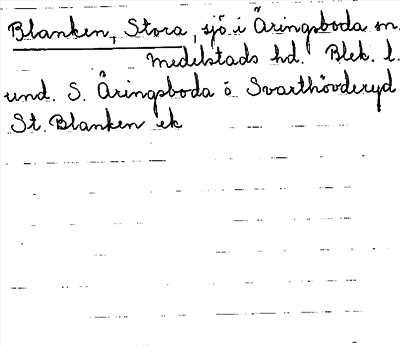 Blanken, Stora, sjö i Åringsboda sn.
Medelstads hd. Blek. l.
und. S. Åringsboda ö Svarthövderyd
St. Blanken ek